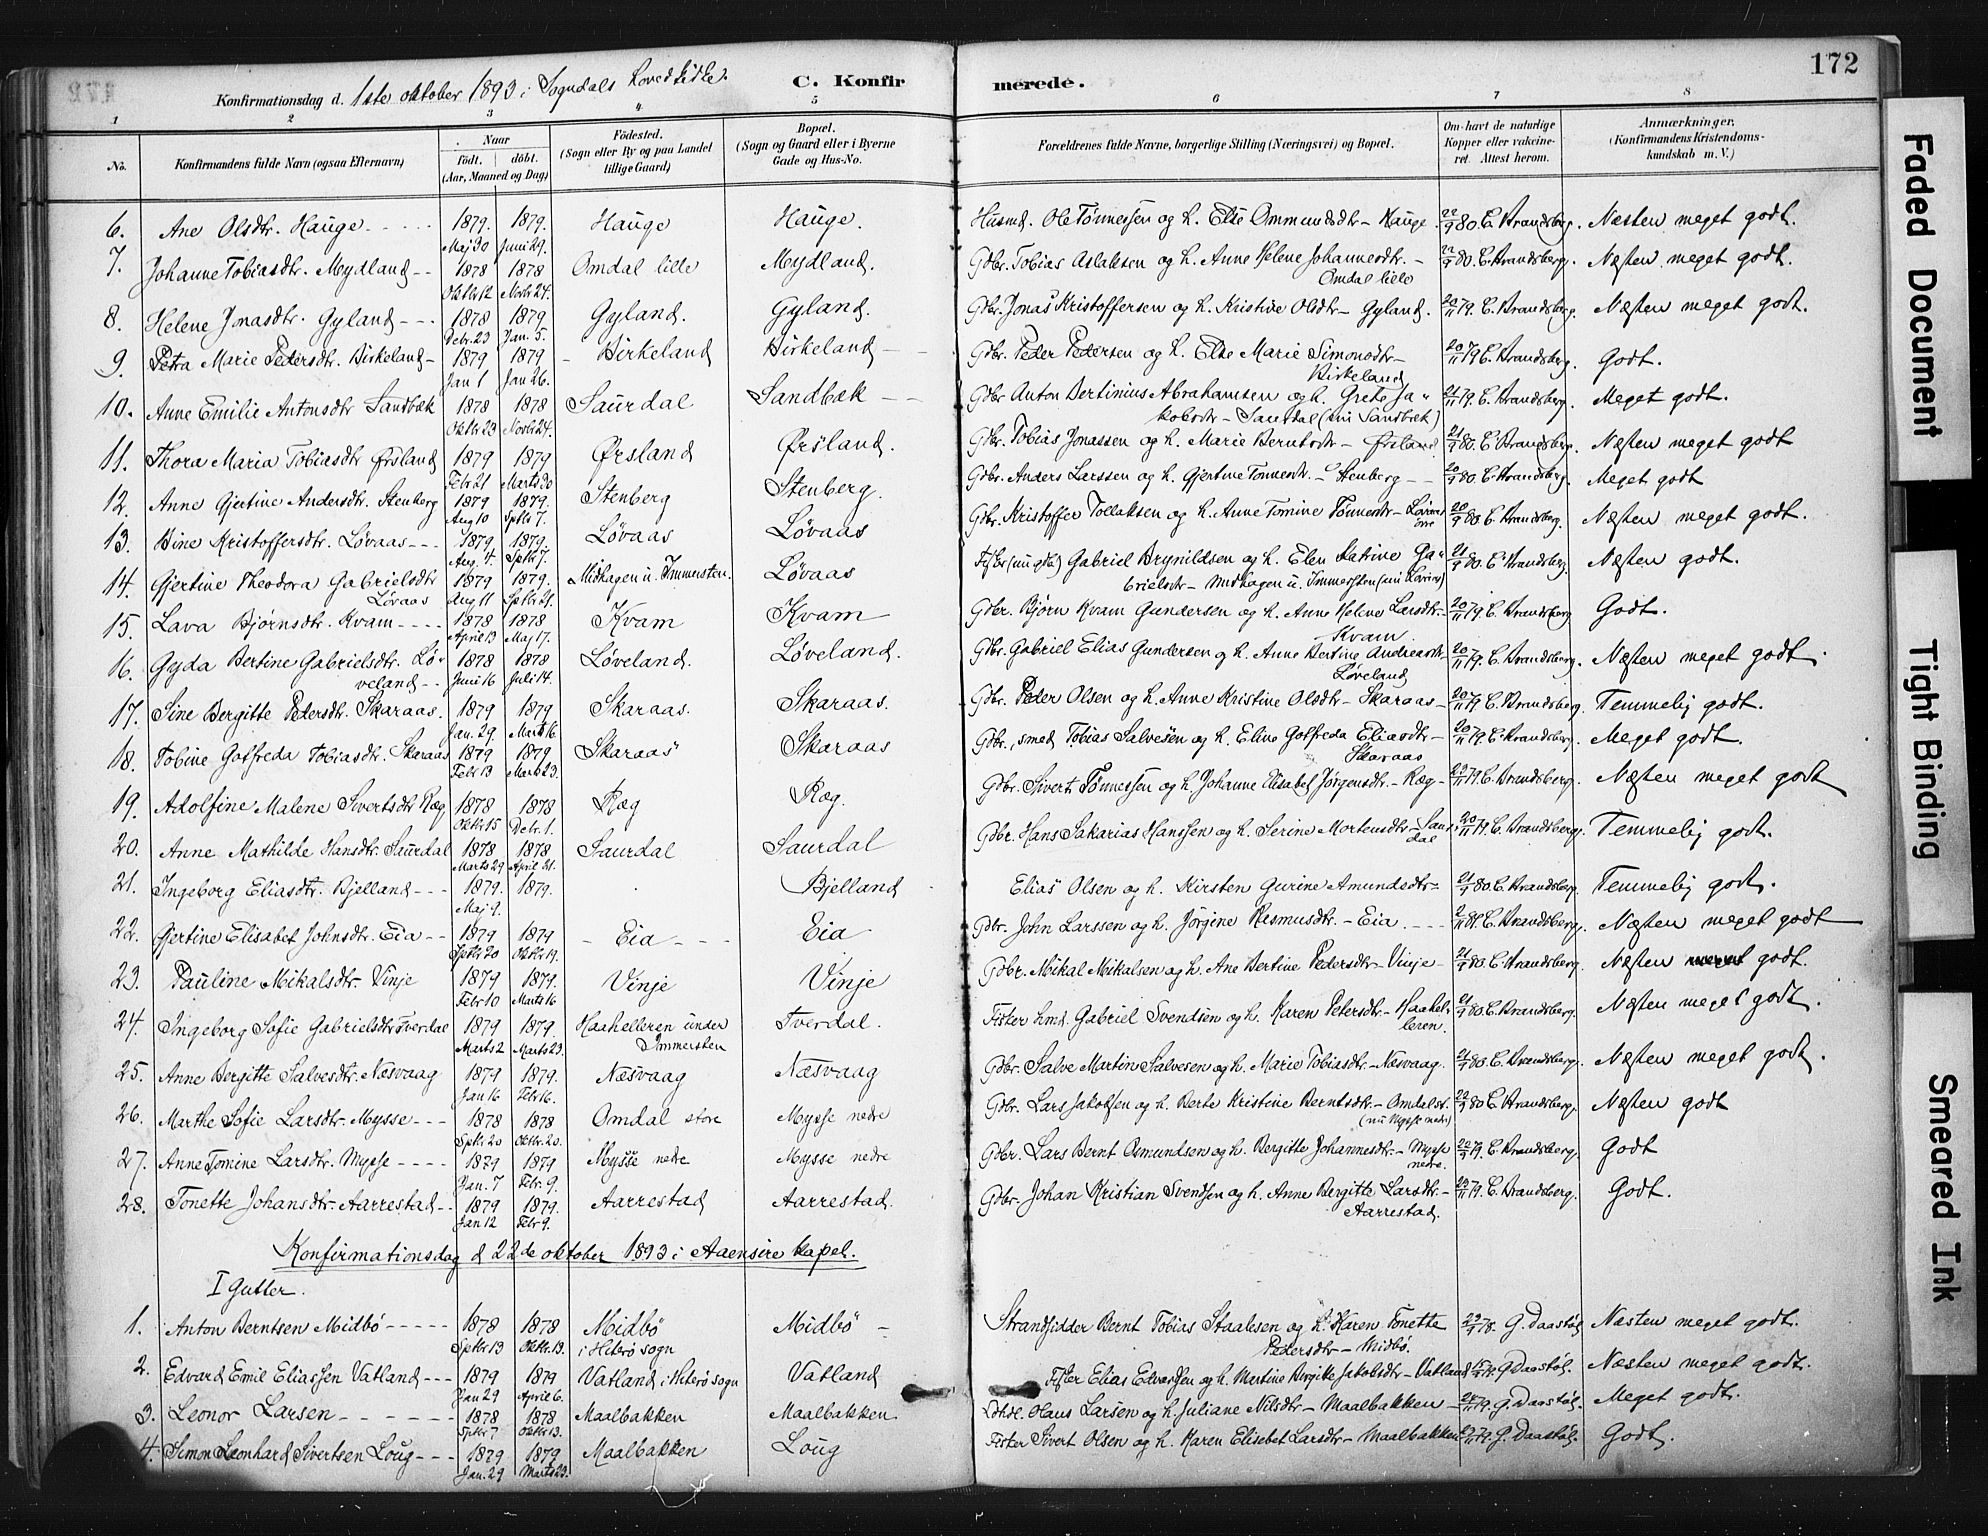 172
Konfirmationsdag d. 1ste oktober 1893 i Sogndals hovedkirke. C. Konfirmerede.
1 2 3 4 5 6 7 8
No. Konfirmandens fulde Navn (ogsaa Efternavn) Naar født. døbt. (Aar, Maaned og Dag) Fødested. (Sogn eller By og paa Landet tillige Gaard) Bopæl. (Sogn og Gaard eller i Byerne Gade og Hus-No. Forældrenes fulde Navne, borgerlige Stilling (Næringsvei) og Bopæl. Om havt de naturlige Kopper eller vakcineret. Attest herom. Anmærkninger. (Konfirmandens Kristendomskundskab m. V.)
6. Ane Olsdtr. Hauge 1879 Maj 30 1879. Juni 29. Hauge Hauge. Husmd. Ole Tønnessen og h. Else Ommundsdtr – Hauge 22/9 80. C. Brandsberg. Næsten meget godt.
7. Johanne Tobiasdtr. Mydland 1878 Oktbr 12 1878 Novbr 24. Omdal lille Mydland. Gdbr. Tobias Aslaksen og h. Anne Helene Johannesdtr. – Omdal lille 22/9 80. C. Brandsberg. Næsten meget godt.
8. Helene Jonasdtr. Gyland 1878 Debr. 23 1879 Jan. 5. Gyland. Gyland. Gbr. Jonas Kristoffersen og h. Kristine Olsdtr – Gyland. 20/11 79. C. Brandsberg. Næsten meget godt.
9. Petra Marie Pedersdtr. Birkeland 1879 Jan 1 1879 Jan 26. Birkeland Birkeland Gdbr. Peder Pedersen og h. Else Marie Simonsdtr – Birkeland 20/11 79 C. Brandsberg. Godt.
10. Anne Emilie Antonsdtr Sandbæk 1878 Oktbr 23 1878 Novbr 24. Saurdal Sandbæk Gdbr Anton Bertinius Abrahamsen og h. Grete Jakobsdtr – Saurdal (nu Sandbæk) 21/11 79. C. Brandsberg. Meget godt.
11. Thora Maria Tobiasdtr Ørsland 1879 Febr 21 1879 Marts 30 Ørsland Ørsland. Gbr. Tobias Jonassen og h. Marie Berntsdtr – Ørsland 21/9 80. C. Brandsberg. Næsten meget godt
12. Anne Gjertine Andersdtr. Stenberg 1879 Aug 10 1879. Sptbr 7. Stenberg Stenberg. Gdbr. Anders Larssen og h. Gjertine Tønnesdtr. – Stenberg 20/9 80. C. Brandsberg. Meget godt
13. Bine Kristoffersdtr. Løvaas 1879 Aug. 4. 1879. Sptbr 7. Løvaas Løvaas Gdbr. Kristoffer Tollaksen og h. Anne Tomine Tønnesdtr – Løvaas 20/9 80. C. Brandsberg. Næsten meget godt.
14. Gjertine Theodora Gabrielsdtr Løvaas 1879 Aug 11 1879. Sptbr 21. Midhagen u. Immersten. Løvaas Fisker (nu gdb.) Gabriel Brynildsen og h. Elen Katrine Gabrielsdtr – Midhagen u. Immersten (nu Løvaas) 21/9 80. C. Brandsberg. Næsten godt.
15. Lava Bjørnsdtr. Kvam 1878 April 13 1878 Maj 17. Kvam Kvam Gdbr. Bjørn Kvam Gundersen og h. Anne Helene Larsdtr. – Kvam. 20/11 79 C. Brandsberg Godt.
16. Gyda Bertine Gabrielsdtr. Løveland 1878 Juni 16 1878 Juli 14. Løveland. Løveland. Gdbr. Gabriel Elias Gundersen og h. Anne Bertine Andreasdtr – Løveland 20/11 79. C. Brandsberg. Næsten meget godt.
17. Sine Bergitte Pedersdtr. Skaraas. 1879 Jan. 29. 1879 Marts 16. Skaraas. Skaraas. Gbr. Peder Olsen og h. Anne Kristine Olsdtr – Skaraas 20/11 79 C. Brandsberg. Temmelig godt.
18. Tobine Gotfreda Tobiasdtr. Skaraas 1879 Febr 13 1879 Marts 23. Skaraas Skaraas Gdbr., smed Tobias Salvesen og h. Eline Gotfreda Eliasdtr – Skaraas 20/11 79. C. Brandsberg. Meget godt.
19. Adolfine Malene Sivertsdtr Ræg 1878 Oktbr 15 1878 Debr. 1. Ræg Ræg. Gdbr. Sivert Tønnessen og h. Johanne Elisabet Jørgensdtr. – Ræg 29/11 79 C. Brandsberg. Næsten meget godt
20. Anne Mathilde Hansdtr. Saurdal 1878 Marts 29 1878 April 21. Saurdal Saurdal Gdbr. Hans Sakarias Hanssen og h. Serine Mortensdtr – Saurdal 20/11 79. C. Brandsberg. Temmelig godt.
21. Ingeborg Eliasdtr. Bjelland 1879. Maj 9. 1879. Bjelland Elias Olsen og h. Kirsten Gurine Amundsdtr 21/9 80. C. Brandsberg. Temmelig godt.
22. Gjertine Elisabet Johnsdtr. Eia 1879 Sptbr 20 1879 Oktbr 19. Eia Eia Gdbr. John Larssen og h. Jørgine Rasmusdtr. – Eia 2/11 81. C. Brandsberg. Næsten meget godt
23. Pauline Mikalsdtr. Vinje 1879 Febr 10 1879. Marts 16 Vinje Vinje Gdbr. Mikal Mikalsen og h. Ane Bertine Pedersdtr – Vinje 21/9 80. C. Brandsberg. Næsten godt.
24. Ingeborg Sofie Gabrielsdtr Tverdal 1879 Marts 2 1879 Marts 23. Haahelleren under Immersten Tverdal. Fisker hmd. Gabriel Svendsen og h. Karen Petersdtr. – Haahelleren. 21/9 80. C. Brandsberg. Næsten meget godt.
25. Anne Bergitte Salvesdtr. Næsvaag 1879 Jan 16 1879. Febr 16. Næsvaag Næsvaag Gdbr. Salve Martin Salvesen og h. Marie Tobiasdtr. – Næsvaag. 21/9 80. C. Brandsberg. Næsten meget godt.
26. Marthe Sofie Larsdtr. Mysse 1878 Sptbr. 20 1878 Oktbr. 20. Omdal store Mysse nedre Gdbr. Lars Jakobsen og h. Berte Kristine Berntsdtr. – Omdal st. (nu Mysse nedre) 22/9 80 C. Brandsberg. Næsten godt
27. Anne Tomine Larsdtr. Mysse 1879 Jan. 7 1879 Febr. 9. Mysse nedre Mysse nedre Gdbr. Lars Bernt Osmundsen og h. Bergitte Johannesdtr. – Mysse nedre. 79. C. Brandsberg. Godt
28. Tonette Johansdtr. Aarrestad 1879 Jan 12 1879. Febr 9. Aarrestad Aarrestad. Gdbr. Johan Kristian Svendsen og h. Anne Bergitte Larsdtr. – Aarrestad. 79. C. Brandsberg. Godt.
Konfirmationsdag d 22de oktober 1893 i Aaensire kapel.
I Gutter.
1. Anton Berntsen Midbø 1878 Sptbr 13 1878 Oktbr. 13. Midbø i Hiterø sogn Midbø Strandsidder Bernt Tobias Staalesen og h. Karen Tonette Pedersdtr – Midbø. G. Daastøl Næsten meget godt.
2. Edvard Emil Eliassen Vatland 1879 Jan 29 1879 April 6. Vatland i Hiterø sogn Vatland Fisker Elias Edvardsen og h. Martine Birgitte Jakobsdtr – Vatland G. Daastøl. Næsten meget godt.
3. Leonor Larsen 1878 Sptbr 7 1878 Oktbr 13. Maalbakken Maalbakken. Hans Larsen og h. Juliane Nilsdtr – Maalbakken 79. G. Daastøl. Meget godt.
4. Simon Leonhard Sivertsen Loug 1879 Jan. 29 1879 Marts 23. Maalbakken Loug Fisker Sivert Olsen og h. Karen Elisebet Larsdtr – Maalbakken 79. G. Daastøl. Godt.
Faded Document
Tight Binding
Smeared Ink